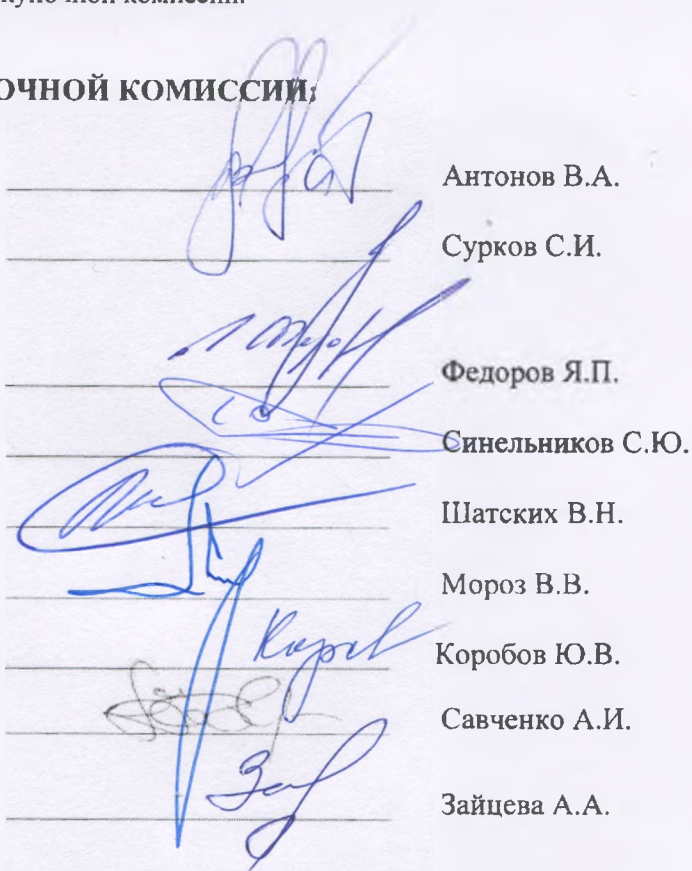 очной комиссии.
ОЧНОЙ КОМИССИИ:
Антонов В.А.
Сурков С.И.
Федоров Я.П.
Синельников С.Ю.
Шатских В.Н.
Мороз В.В.
Коробов Ю.В.
Савченко А.И.
Зайцева А.А.